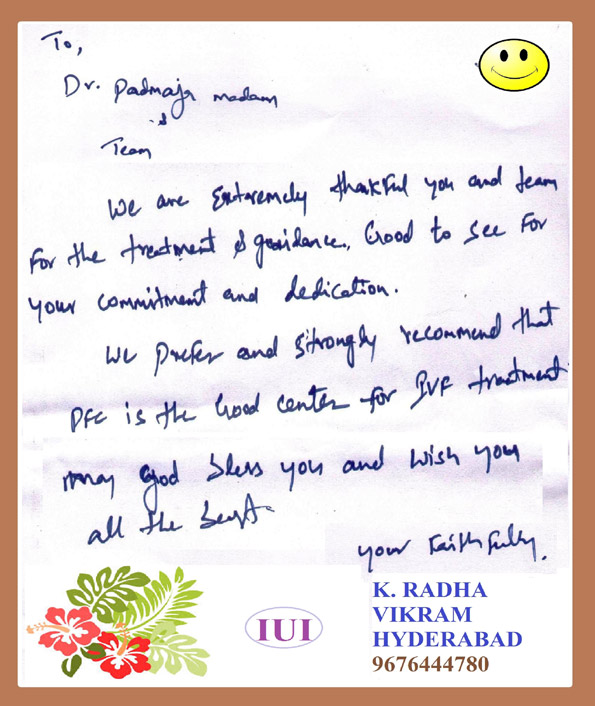 To,
Dr. Padmaja madam
&
Team
We are Extoremely thankful you and team
For the treatment & guidance, Good to see For
your commitment and dedication.
We prefer and strongly recommend that
PFC is the Good center for IVF treatment
may god bless you and wish you
all the best.
your Faithfully.
IUI
K. RADHA
VIKRAM
HYDERABAD
9676444780